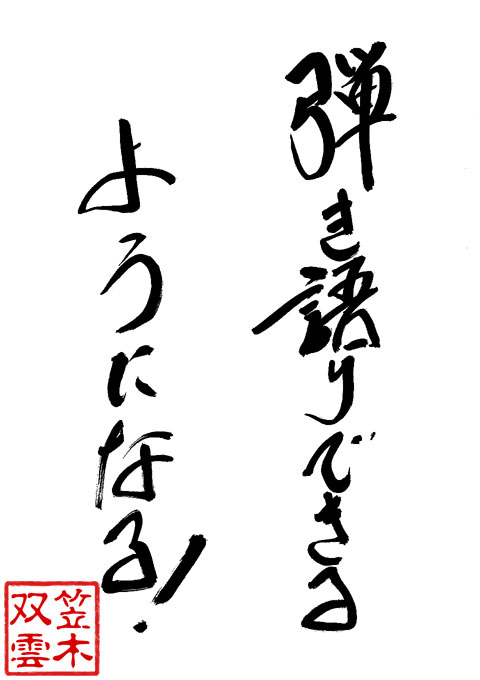 弾き語りできる
ようになる!
笠木
双雲